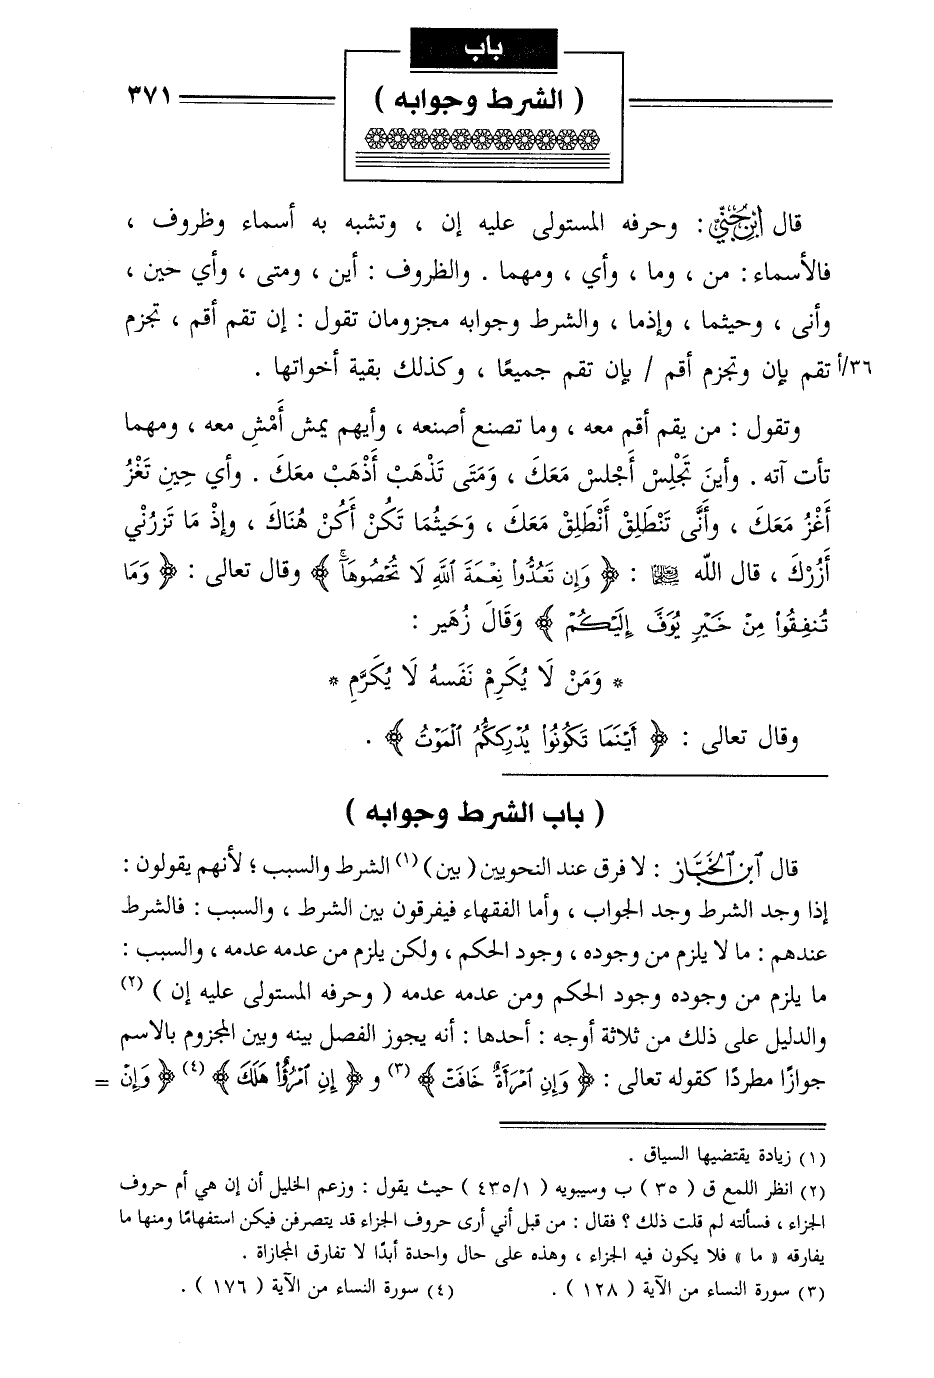 باب
( الشرط وجوابه )
٣٧١
قال ابن جني : وحرفه المستولى عليه إن ، وتشبه به أسماء وظروف ،
فالأسماء : من ، وما ، وأي ، ومهما . والظروف : أين ، ومتى ، وأي حين ،
وأنى ، وحيثما ، وإذما ، والشرط وجوابه مجزومان تقول : إن تقم أقم ، تجزم
٣٦/أ تقم بإن وتجزم أقم / بإن تقم جميعًا ، وكذلك بقية أخواتها .
وتقول : من يقم أقم معه ، وما تصنع أصنعه ، وأيهم يمش أَمْشِ معه ، ومهما
تأت آته . وأينَ تَجْلِسْ أَجْلسْ مَعَكَ ، وَمَتَى تَذْهَبْ أَذْهَبْ معَكَ . وأي حِينِ تَغْزُ
أَغْزُ مَعَكَ ، وأَنَّى تَنْطَلِقْ أَنْطَلِقْ مَعَكَ ، وَحَيثُمَا تَكُنْ أَكُنْ هُنَاكَ ، وإذْ مَا تَزرُنْي
أَزُرْكَ ، قال اللَّه ﷻ : ﴿ وَإِن تَعُدُّوا۟ نِعْمَةَ ٱللَّهِ لَا تُحْصُوهَآۚ ﴾ وقال تعالى : ﴿ وَمَا
تُنفِقُوا۟ مِنْ خَيْرٍ يُوَفَّ إِلَيْكُمْ ﴾ وَقَالَ زُهَير :
* وَمَنْ لَا يُكَرِمْ نَفَسهُ لَا يُكَرَّمِ *
وقال تعالى : ﴿ أَيْنَمَا تَكُونُوا۟ يُدْرِككُّمُ ٱلْمَوْتُ ﴾ .
( باب الشرط وجوابه )
قال ابن الخَبَّاز : لا فرق عند النحويين ( بين ) (١) الشرط والسبب ؛ لأنهم يقولون :
إذا وجد الشرط وجد الجواب ، وأما الفقهاء فيفرقون بين الشرط ، والسبب : فالشرط
عندهم : ما لا يلزم من وجوده ، وجود الحكم ، ولكن يلزم من عدمه عدمه ، والسبب :
ما يلزم من وجوده وجود الحكم ومن عدمه عدمه ( وحرفه المستولى عليه إن ) (٢)
والدليل على ذلك من ثلاثة أوجه : أحدها : أنه يجوز الفصل بينه وبين المجزوم بالاسم
جوازًا مطردًا كقوله تعالى : ﴿ وَإِنِ ٱمْرَأَةٌ خَافَتْ ﴾ (٣) و ﴿ إِنِ ٱمْرُؤٌا۟ هَلَكَ ﴾ (٤) ﴿ وَإِنْ =
(١) زيادة يقتضيها السياق .
(٢) انظر اللمع ق ( ٣٥ ) ب وسيبويه ( ٤٣٥/١ ) حيث يقول : وزعم الخليل أن إن هي أم حروف
الجزاء ، فسألته لم قلت ذلك ؟ فقال : من قبل أني أرى حروف الجزاء قد يتصرفن فيكن استفهامًا ومنها ما
يفارقه « ما » فلا يكون فيه الجزاء ، وهذه على حال واحدة أبدًا لا تفارق المجازاة .
(٣) سورة النساء من الآية ( ١٢٨ ) . (٤) سورة النساء من الآية ( ١٧٦ ) .